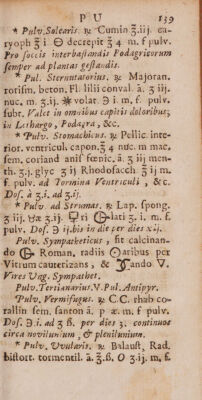 P U 139
* Pulv. Solearis. ♃ Cumin ℥.iij. ca-
ryoph ℥ i ⊖ decrepit ℥ 4 m. f pulv.
Pro soccis interbastandis Podagricorum
semper ad plantas gestandis.
* Pul. Sternutatorius, ♃ Majoran.
rorismː beton. Fl. lilii conval. ā. 3 iij.
nuc. m. 3.ij. volat. ℈ i m. f. pulv.
subt. Valet in omnibus capitis doloribus,
in Lethargo, Podagra, &c.
* Pulv. Stomachicus. ♃ Pellic. inte-
rior. ventricul capon. ℥ 4 nuc. m mac.
sem. coriand anis fœnic. ā. 3 iij menth.
th. 3.j. glyc 3 ij Rhodosacch. ℥ ij m
f. pulv. ad Tormina Ventriculi, &c.
Dos. à 3 i. ad 3.ij.
* Pulv. ad Strumas. ♃ Lap. spong.
3 iij. æ 3.ij. ri lati 3.i. m. f.
pulv. Dos. ℈ ij. bis in die per dies xij.
Pulv. Sympatheticus, fit calcinan-
do Roman. radiis aribus per
Vitrum cauterizans, & ando ▽.
Vires Vag. Sympathet.
Pulv. Tertianarius. V. Pul. Antipyr.
Pulv. Vermifugus. ♃ C.C. rhab co-
rallin sem. santon ā. p æ. m. f pulv.
Dos. ℈.i. ad 3 ß. per dies 3. continuos
circa novilunium, & plenilunium.
* Pulv. Uvularis. ♃ Balaust, Rad.
bistort. tormentil. ā. ℥.ß. 3.ij. m. f.